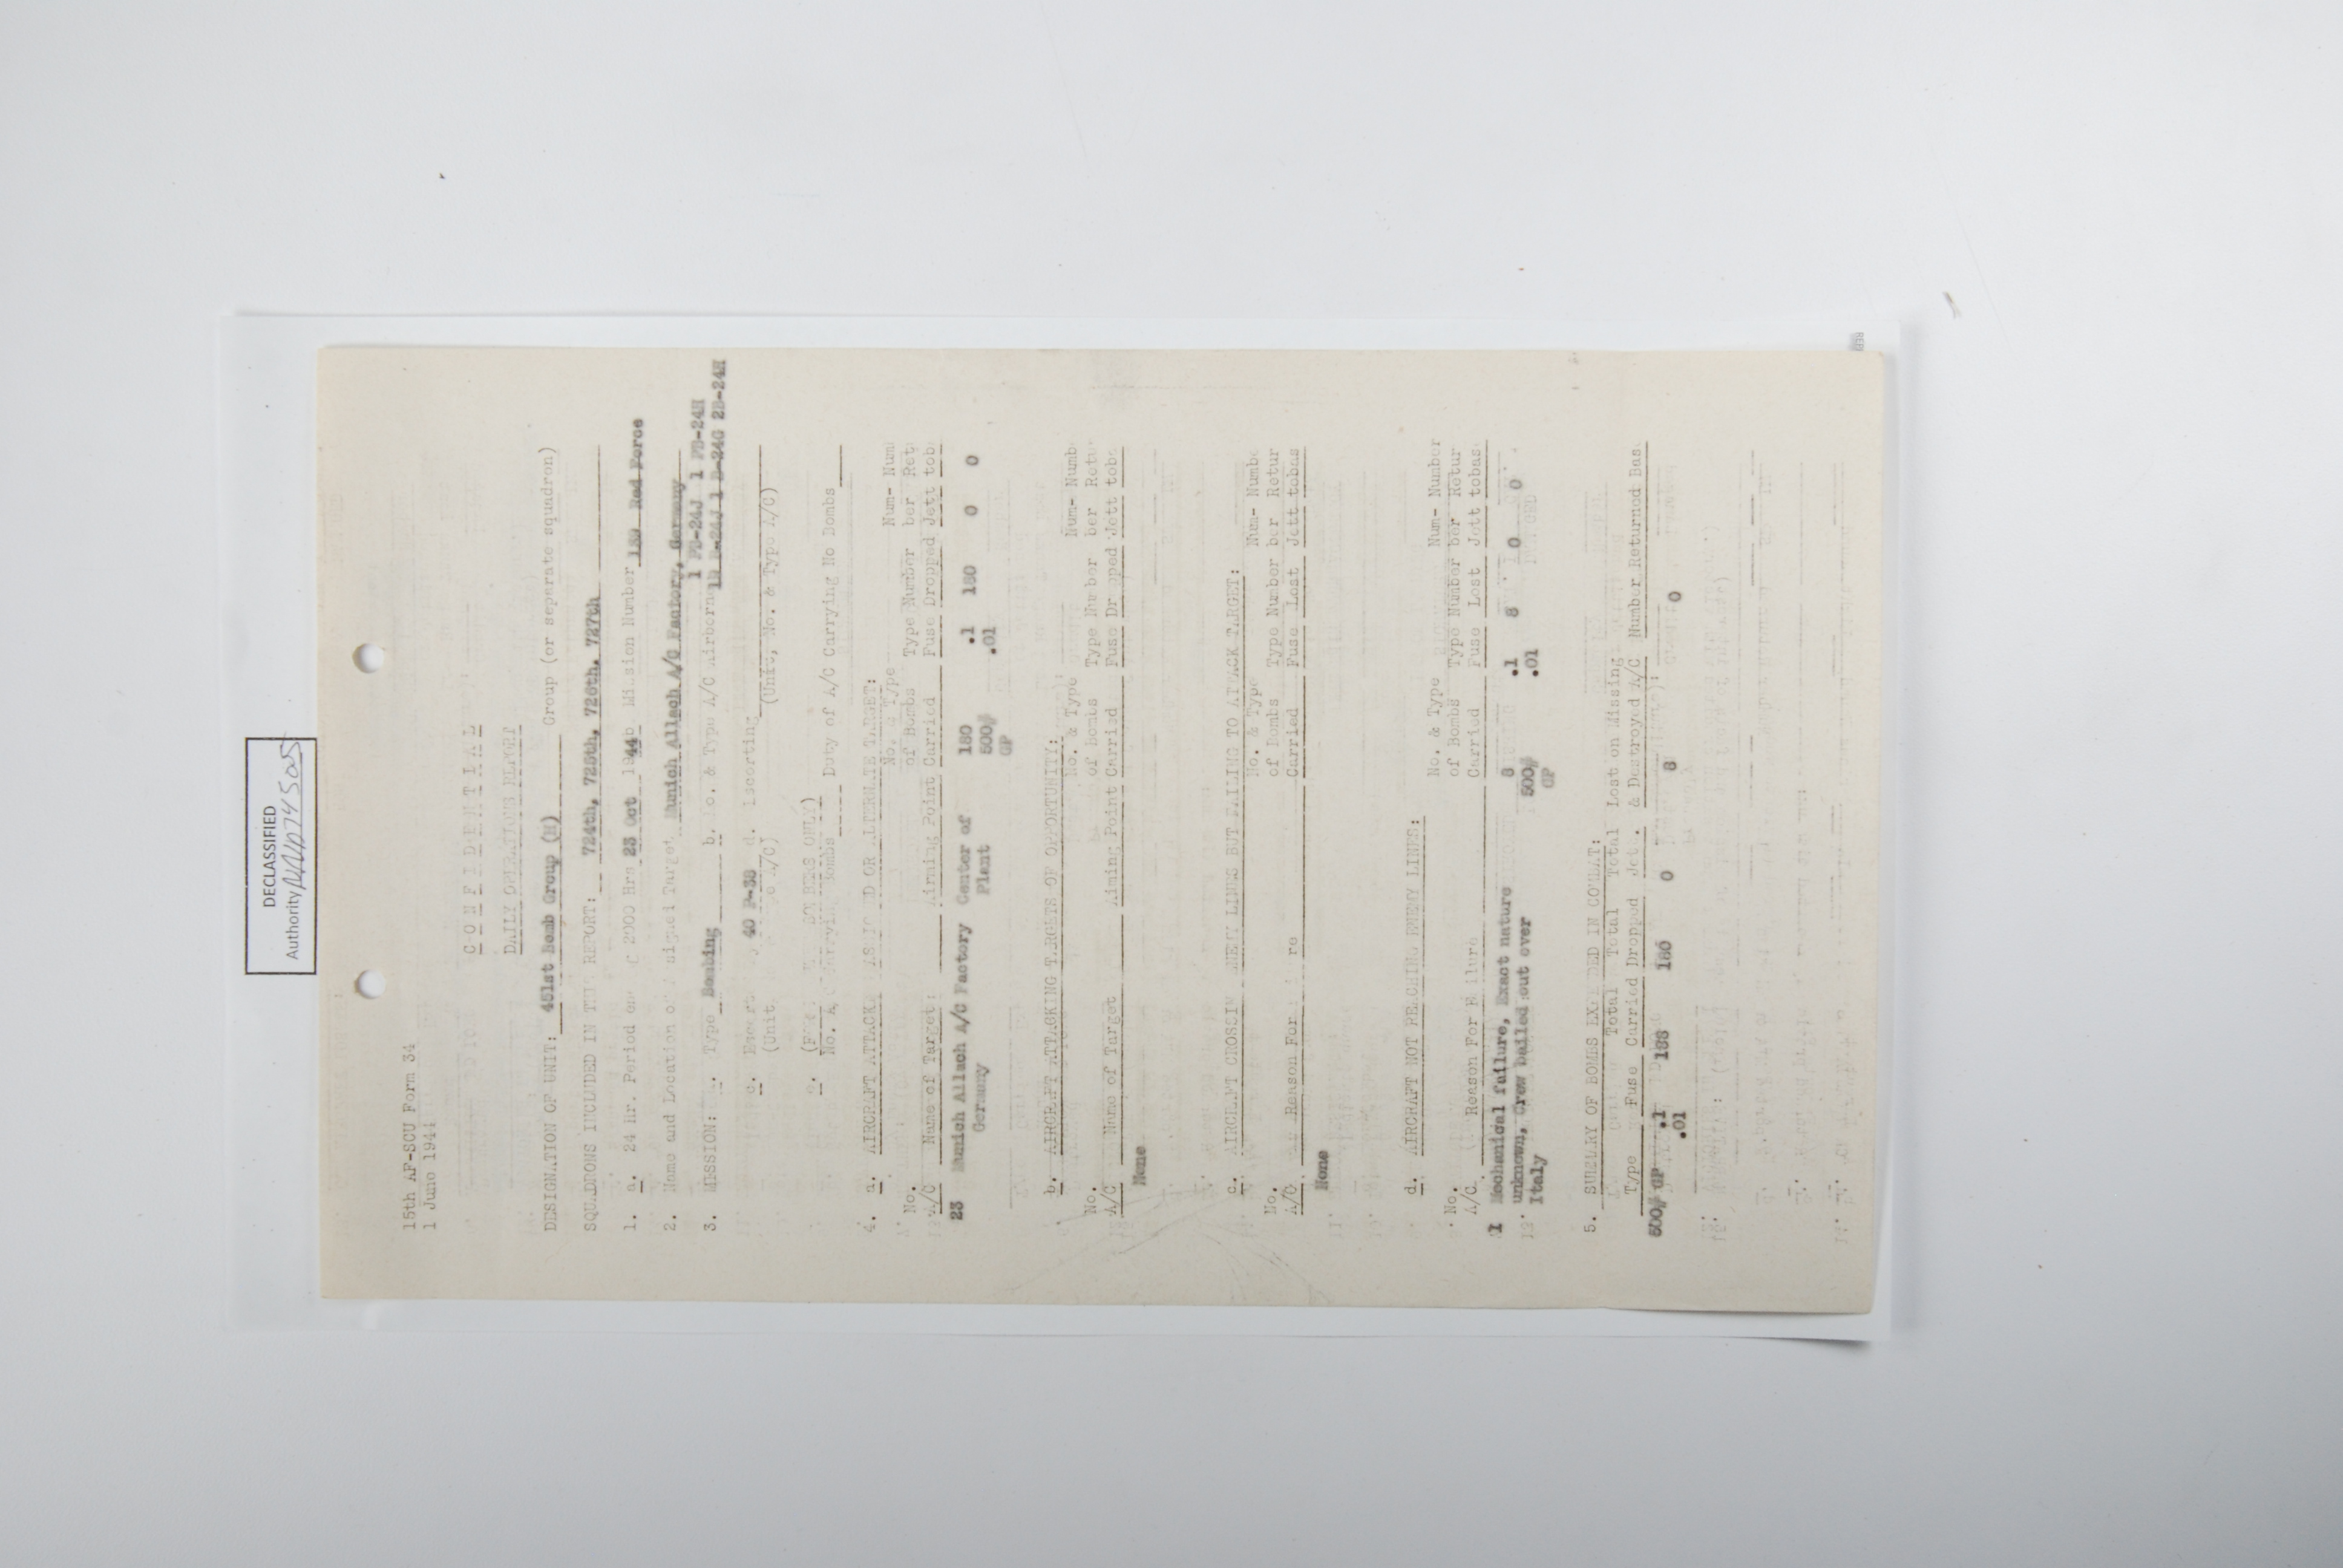 DECLASSIFIED
Authority NND 745005
15th AF-SCU Form 34
1 June 1944
C O N F I D E N T I A L
DAILY OPERATIONS REPORT
DESIGNATION OF UNIT: 451st Bomb Group (H) Group (or separate squadron)
SQUADRONS INCLUDED IN THIS REPORT: 724th, 725th, 726th, 727th
1. a. 24 Hr. Period 2000 Hrs 23 Oct 1944 b. Mission Number 159 Red Force
2. Name and Location of Assigned Target Munich Allach A/C Factory, Germany
1 PB-24J 1 PB-24H
3. MISSION: a. Type Bombing b. No. & Type A/C Airborne B-24J 1 B-24G 2B-24H
c. Escort 40 P-38 d. Escorting
(Unit A/C) (Unit, No. & Type A/C)
e. (BOMBERS ONLY)
No. A/C Carrying Bombs Duty of A/C Carrying No Bombs
4. a. AIRCRAFT ATTACKING ASSIGNED OR ALTERNATE TARGET:
No. No. & Type Num- Num
of Bombs Type Number ber Ret
A/C Name of Target: Aiming Point Carried Fuse Dropped Jett tob
23 Munich Allach A/C Factory Center of 180 .1 180 0 0
Germany Plant 500# .01
GP
b. AIRCRAFT ATTACKING TARGETS OF OPPORTUNITY:
No. & Type Num- Numb
No. of Bombs Type Number ber Retu
A/C Name of Target Aiming Point Carried Fuse Dropped Jett toba
None
c. AIRCRAFT CROSSING ENEMY LINES BUT FAILING TO ATTACK TARGET:
No. & Type Num- Numbe
No. of Bombs Type Number ber Retur
A/C Reason For Carried Fuse Lost Jett tobas
None
d. AIRCRAFT NOT REACHING ENEMY LINES:
No. & Type Num- Number
No. of Bombs Type Number ber Retur
A/C Reason For Failure Carried Fuse Lost Jett tobas
1 Mechanical failure, Exact nature 8 .1 8 0 0
unknown, Crew bailed out over 500# .01
Italy GP
5. SUMMARY OF BOMBS EXPENDED IN COMBAT:
Total Total Total Total Lost on Missing
Type Fuse Carried Dropped Jett. & Destroyed A/C Number Returned Bas
500# GP .1 188 180 0 8 0
.01